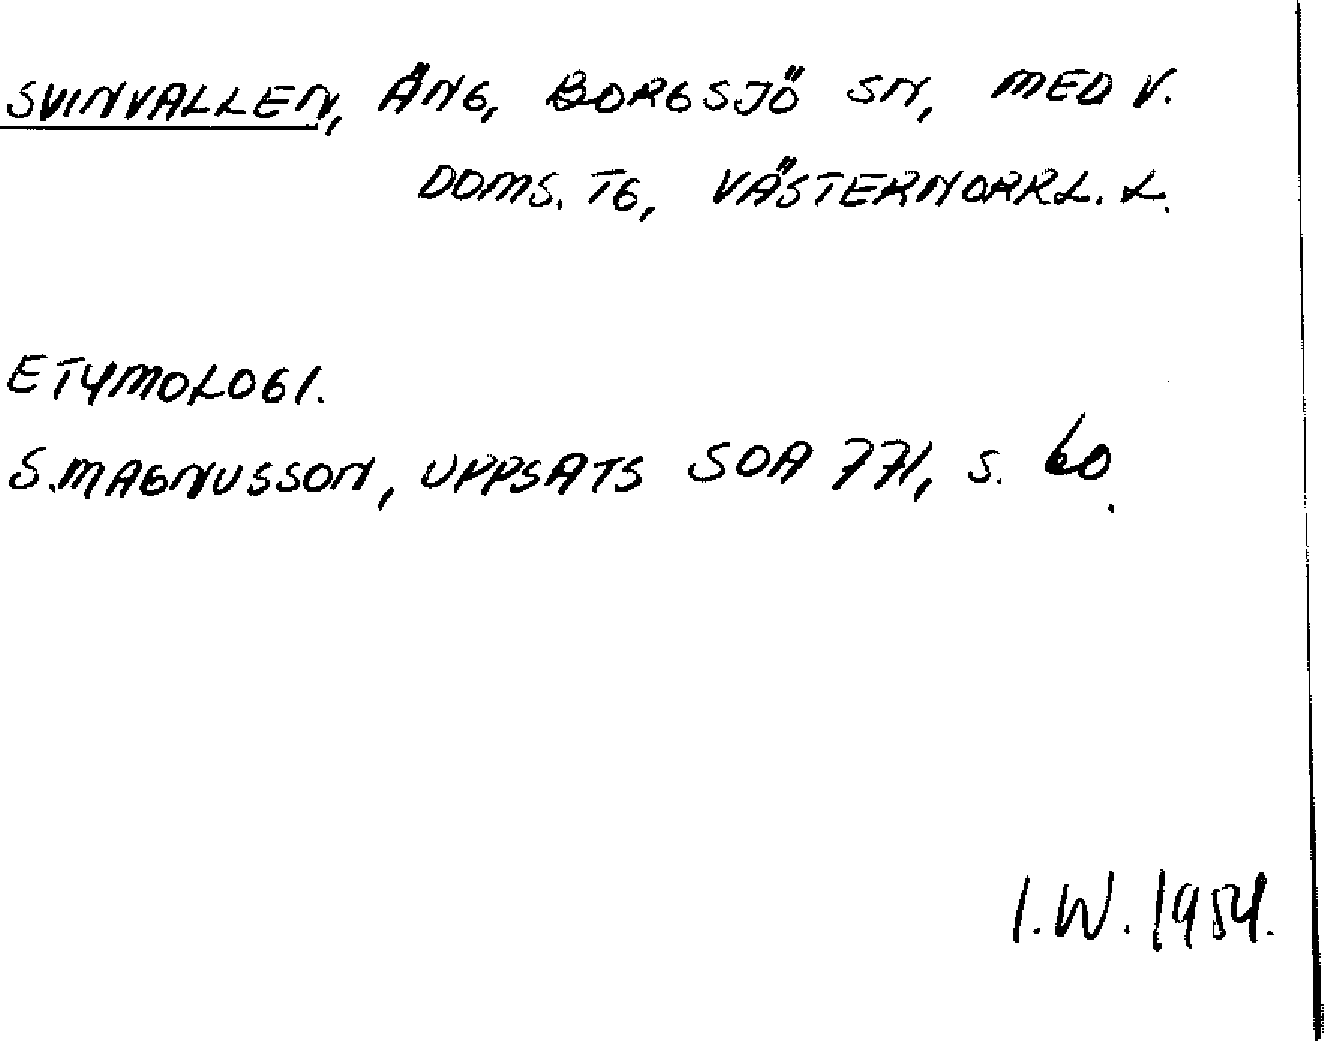 SVINVALLEN, ÄNG, BORGSJÖ SN, MED V.
DOMS. TG, VÄSTERNORRL. L.
ETYMOLOGI.
S. MAGNUSSON, UPPSATS SOA 771, S. 60.
I. W. 1954.